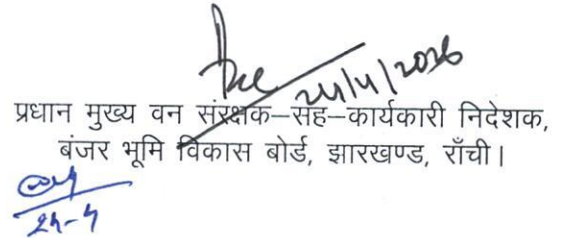 24/4/2026
प्रधान मुख्य वन संरक्षक–सह–कार्यकारी निदेशक,
बंजर भूमि विकास बोर्ड, झारखण्ड, राँची।
24-4